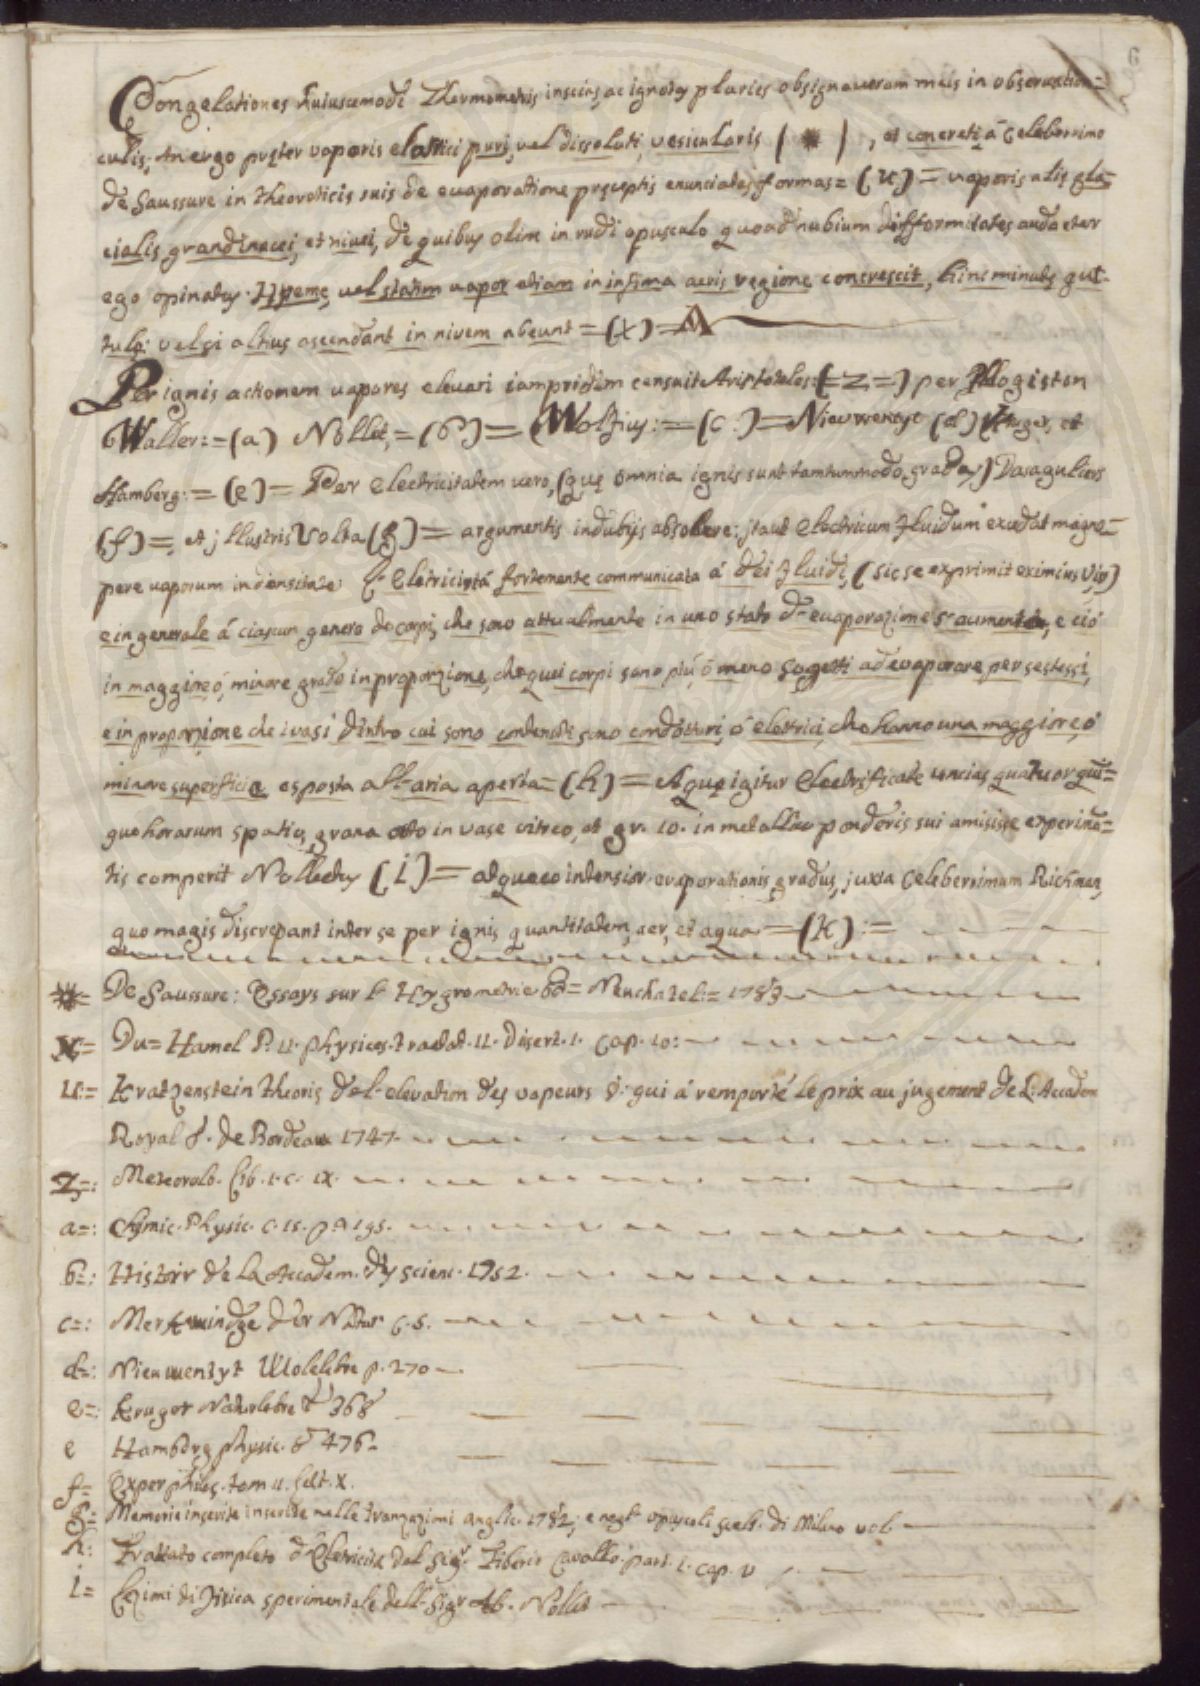 6
Congelationes huiuscemodi Thermometris insciis, ac ignotis pluries obsignaveram meis in observation=
culis; An ergo pręter vaporis elastici puri, vel dissoluti, vesicularis (✸), et concreti, á Celeberrimo
de Saussure in theoreticis suis de evaporatione pręceptis enunciatas formas = (u) = vaporis alię gla=
cialis grandinacei, et nivei, de quibus olim in rudi opusculo quoad nubium difformitates audacter
ego opinatus. Hyeme, vel statim vapor etiam in infima aeris regione concrescit, hinc minutę gut=
tulę: vel si altius ascendant in nivem abeunt = (x) =
Per ignis actionem vapores elevari iampridem censuit Aristoteles: (=Z=) per Phlogiston
Waller: = (a) Nollet, = (b) = Wolfius: = (c:) = Nieuwentyt (d) Kruger, et
Hamberg: = (e) = Per electricitatem vero, (quę omnia ignis sunt tantummodo gradus) Dasaguliers
(f) =, et jllustris Volta (g) = argumentis indubijs absolvere: jtaut electricum fluidum exudat magno=
pere vaporum indensitate: L'Eletricistá fortemente communicata á dei fluidi, (sic se exprimit eximius Vir)
e in generale á ciascun genero de corpi, che sono attualmente in uno stato d'evaporazione s'aumenta, e ció
in maggiore, ó, minore grado in proporzione, che quei corpi sono piú, ó meno sogetti ad evaporare per se stessi,
e in proporzione che i vasi dentro cui sono contenuti sono condotturi, ó elettrici, che hanno una maggiore, ó
minore superficie esposta all'aria aperta = (h) = Aquę igitur Electrificate uncias quatuor quin=
que horarum spatio, grana otto in vase vitreo, et gr. 10. in metallico ponderis sui amisisse experimen=
tis comperit Nolletus (i) = atque eo intensior evaporationis gradus, juxta Celeberrimum Richman,
quo magis discrepant inter se per ignis quantitatem, aer, et aqua = (k): =
✸= De Saussure: Essays sur l'Hygrometrie 8o = Neuchatel: = 1783
x= Du=Hamel P. 11. physices. tractat. 11. Disert. 1. cap. 10:
u:= Kratzenstein theoris de l'elevation des vapeurs &. qui á remporté le prix au jugement de L: Accadem
Royal &. de Bordeau 1747.
Z=: Meteorolo. Lib. 1. c. IX.
a=: Chymic. Physic. c. 15. pa. 195.
b=: Histoir de la Accadem. dy scienc. 1752.
c=: Merkwindge der Natur c. 5.
d=: Nieuwentyt Wolelebre p. 270
e=: Kruger Naturlebre & 368
e Hamberg physic. & 476.
f= Exper philos. tom 11. sect. X.
g= Memorie inserite inserite nelle tranzazioni anglic. 1782; e negl' opuscoli scelt. di Milano vol.
h: Trattato completo d'Eletricitá del Sigr. Tiberio Cavallo. part. 1. cap. V
i= Lezioni di Fisica sperimentale dell Sigr Ab. Nollet